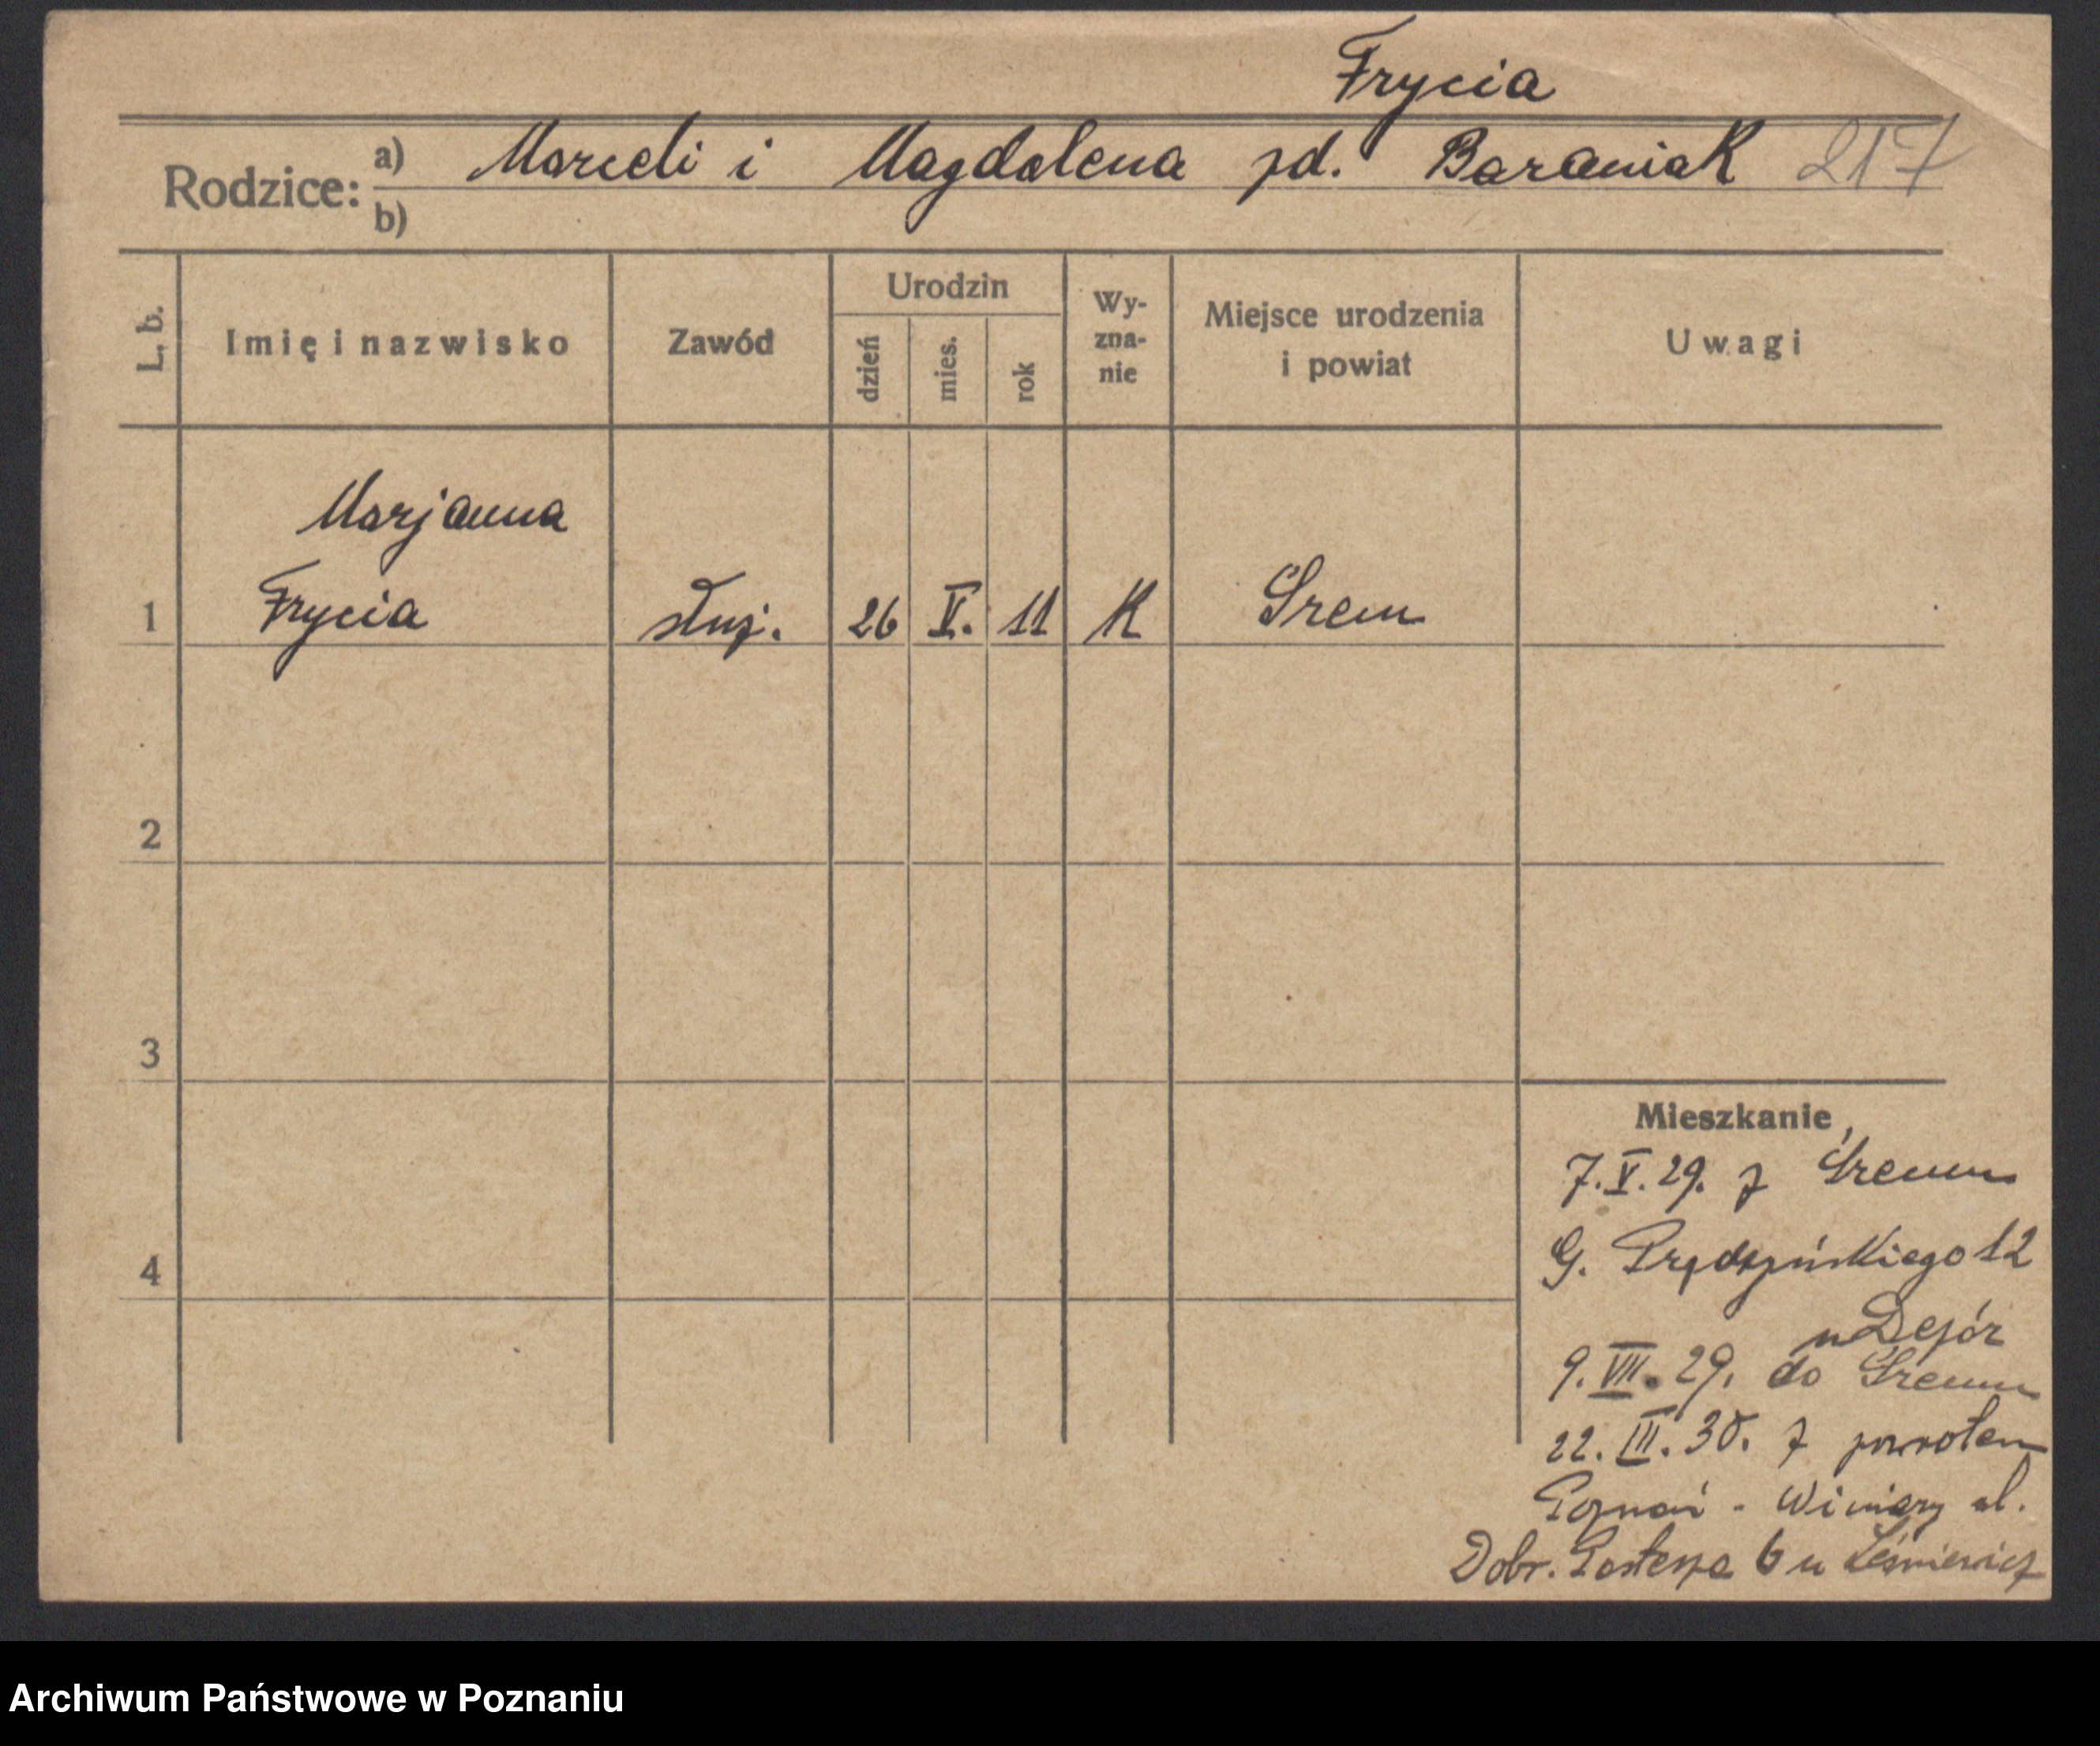 Frycia
Rodzice: a) Marceli i Magdalena zd. Baraniak 217
b)
L. b. Imię i nazwisko Zawód Urodzin dzień mies. rok Wy-zna-nie Miejsce urodzenia i powiat Uwagi
Marjanna
1 Frycia służ. 26 V. 11 K Śrem
2
3
Mieszkanie
7.V.29. z Śremu
4 G. Prądzyńskiego 12
u
9.VII.29. do Śremu
22.III.30. z powrotem
Poznań - Winiary ul.
Dobr. Pasterza 6 u Leśniewicz
Archiwum Państwowe w Poznaniu